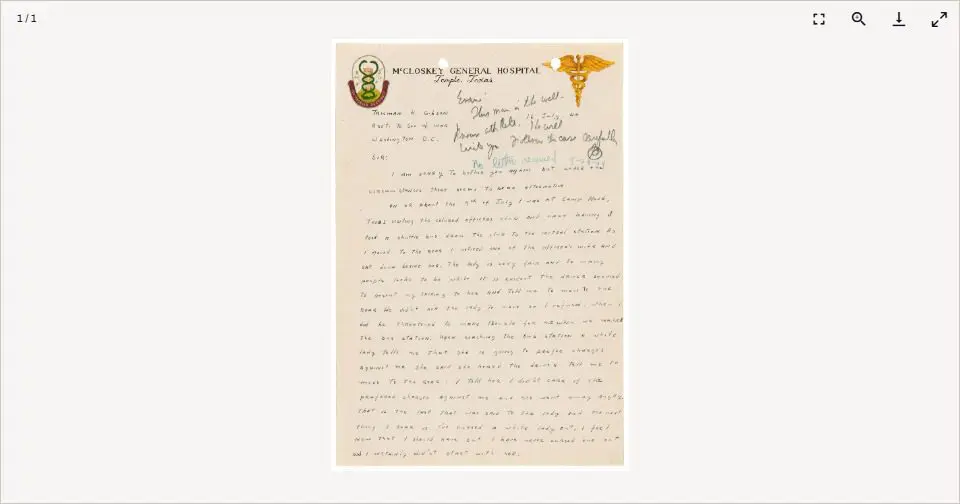 1 / 1
McCLOSKEY GENERAL HOSPITAL
Temple, Texas
16 July
Truman K Gibson
Asst. to Sec of War
Washington D.C.
This man is the well-
known athlete. He will
write you. Follow the case carefully
No letter required
Sir:
I am sorry to bother you again but under the
circumstances there seems to be no alternative
On or about the of July I was at Camp Hood,
Texas visiting the colored officers club and upon leaving I
took a shuttle bus from the club to the central station. As
I moved to the rear I noticed one of the officer's wife and
sat down beside her. The lady is very fair and to many
people looks to be white. It is evident the driver seemed
to resent my talking to her and told me to move to the
rear. He didn't ask the lady to move so I refused. When I
did he threatened to make trouble for me when we reached
the bus station. Upon reaching the bus station a white
lady tells me that she is going to prefer charges
against me. She said she heard the driver tell me to
move to the rear. I told her I didn't care if she
preferred charges against me and she went away angry.
That is the last that was said to the lady and the next
thing I hear is I've cursed a white lady out. I feel
now that I should have but I have never cursed one out
and I certainly didn't start with her.